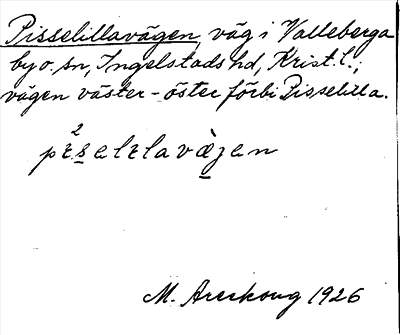 Pisselillavägen, väg i Valleberga
by o. sn, Ingelstads hd, Krist. l.;
vägen väster - öster förbi Pisselilla.
M. Areskoug 1926